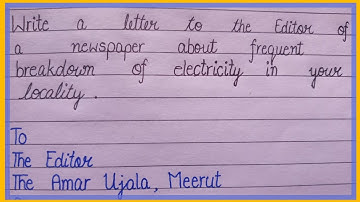 Write a letter to the Editor of
a newspaper about frequent
breakdown of electricity in your
locality.
To
The Editor
The Amar Ujala, Meerut